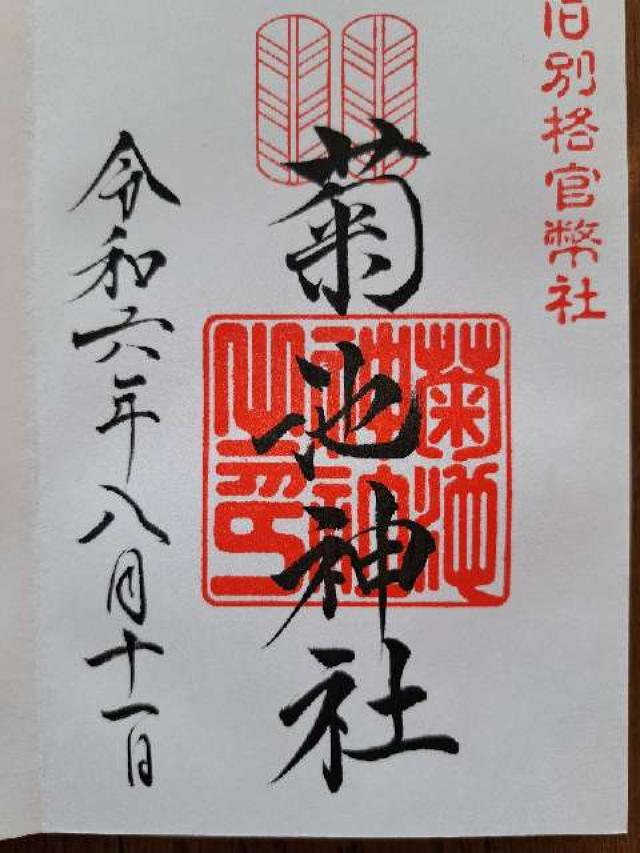 旧別格官幣社
菊池神社
菊池神社之印
令和六年八月十一日